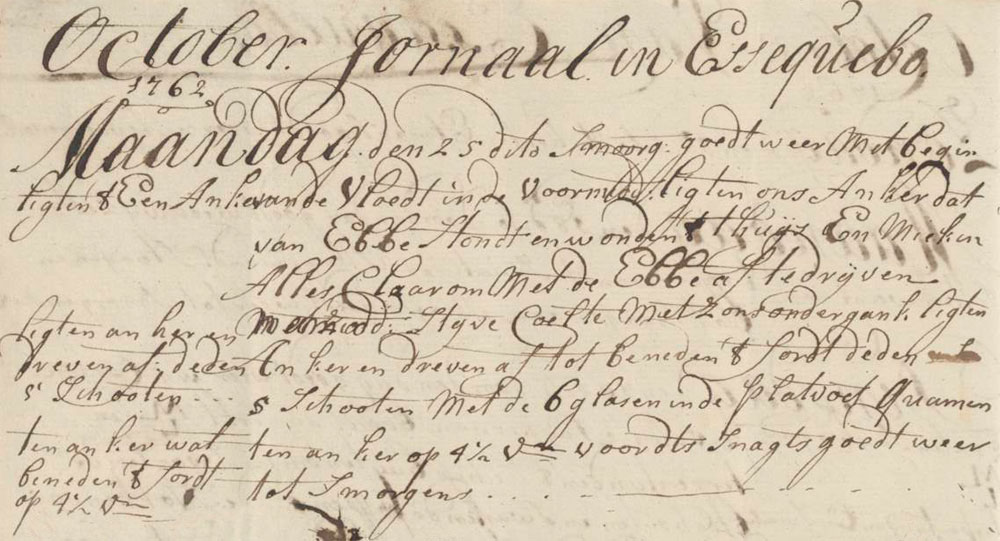 October. Jornaal. in Essequebo.
1762
Maandag. den 25 dito Smoorg. goedt weer Met begin
ligten 't Een Anker vande Vloedt inde Voormidd: ligten ons Anker dat
van Ebbe Stondt en wonden 't thuijs En Mieken
Alles Claar om Met de Ebbe af te drijven
ligten anker en Metnamidd: Styve Coelte Met Zons ondergank ligten
dreven af: deden Anker en dreven af tot beneden 't fordt deden
5 Schooten ... 5 Schooten Met de 6 glasen inde Platvoet Quamen
ten anker wat ten anker op 4½ Vm voordts Snagts goedt weer
beneden 't fordt tot Smorgens
op 4½ Vm